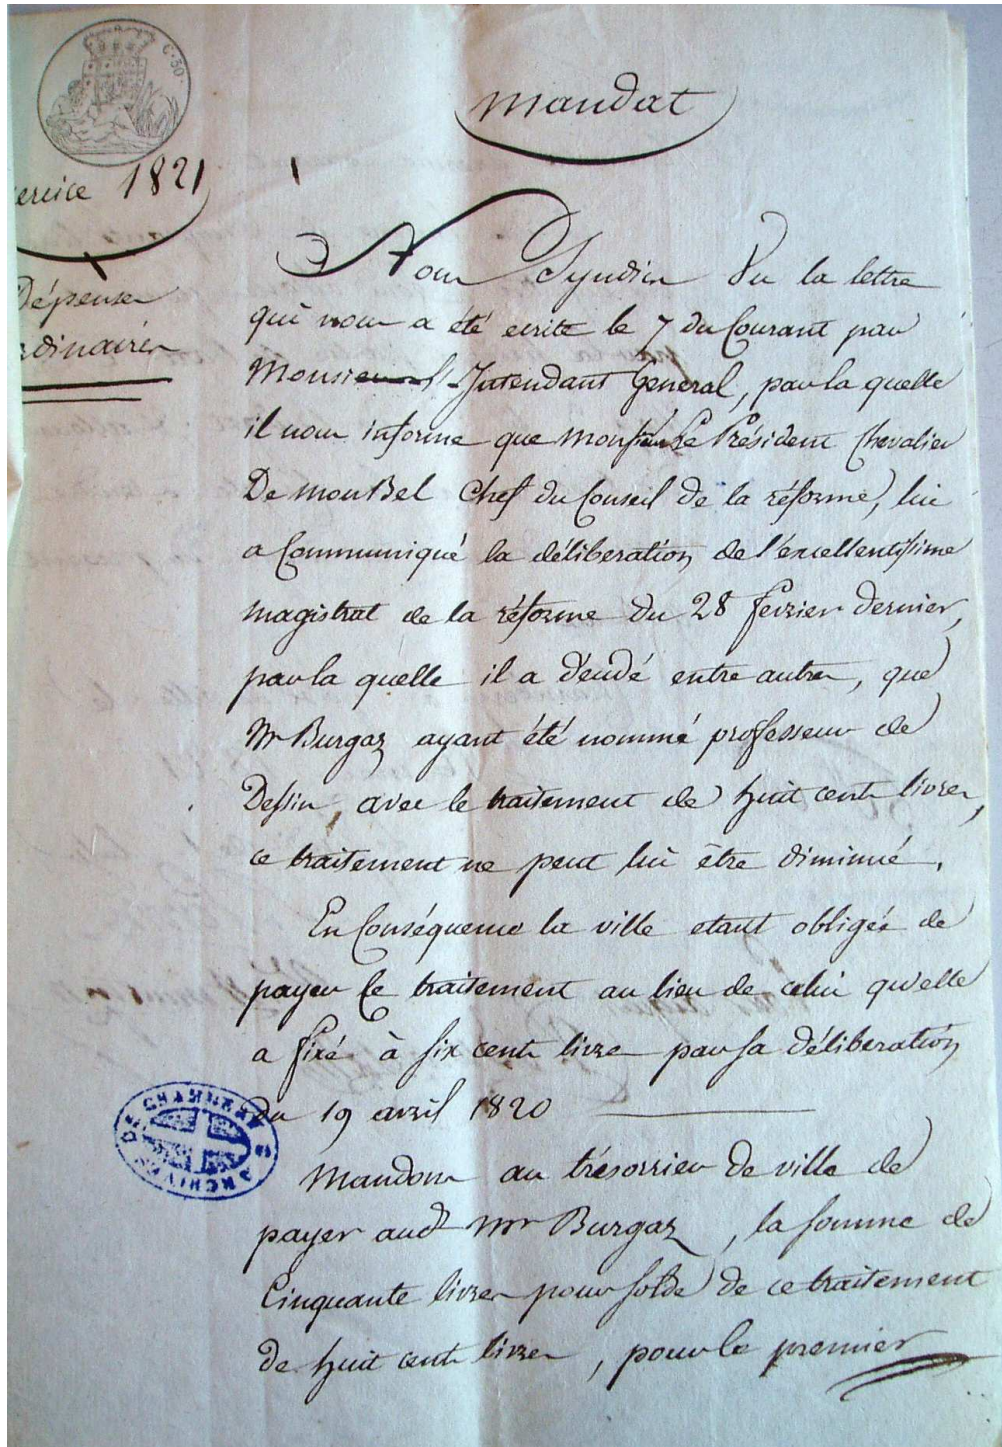 C. 50
Mandat
ercice 1821
Dépenses
rdinaires
Nous Syndics Vu la lettre
qui nous a été ecrite le 7 du Courant par
Monsieur l'Intendant General, par la quelle
il nous informe que Monsieur Le Président Chevalier
De Montbel Chef du Conseil de la réforme, lui
a Communiqué la déliberation de l'excellentissime
magistrat de la réforme du 28 fevrier dernier,
par la quelle il a décidé entre autres, que
Mr Burgaz ayant été nommé professeur de
Dessin, avec le traitement de huit cents livres,
ce traitement ne peut lui être diminué.
En Conséquence la ville etant obligée de
payer Ce traitement au lieu de celui qu'elle
a fixé à six cents livres par sa déliberation
du 19 avril 1820
Mandons au trésorrier de ville de
payer aud. Mr Burgaz, la somme de
Cinquante livres pour solde de ce traitement
de huit cents livres, pour le premier
ARCHIVES DE CHAMBERY